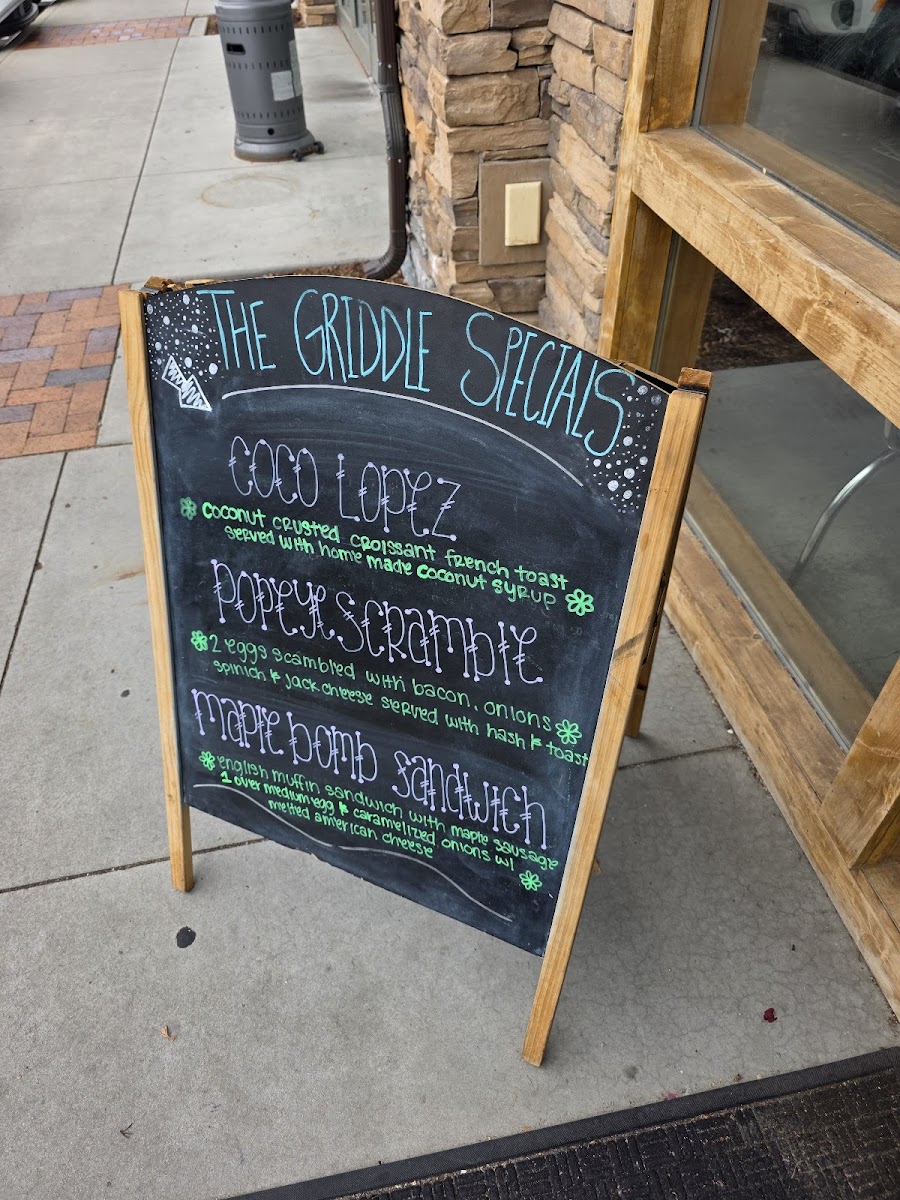 THE GRIDDLE SPECIALS
COCO LOPEZ
coconut crusted croissant french toast
served with home made coconut syrup
POPEYE SCRAMBLE
2 eggs scambled with bacon, onions
spinich & jack cheese served with hash & toast
maple bomb sandwich
english muffin sandwich with maple sausage
1 over medium egg & caramelized onions w/
melted american cheese